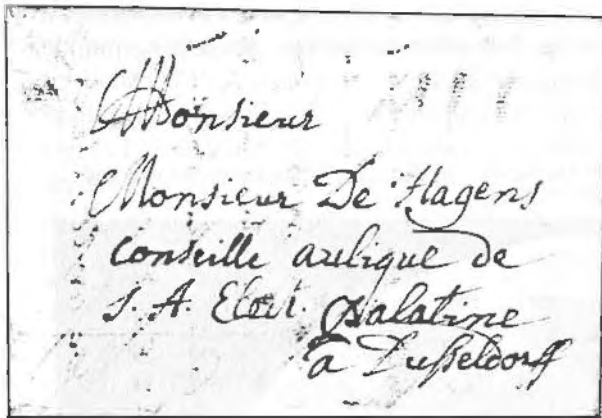 Monsieur
Monsieur De Hagens
Conseille aulique de
S. A. Elect. Palatine
à Dusseldorff